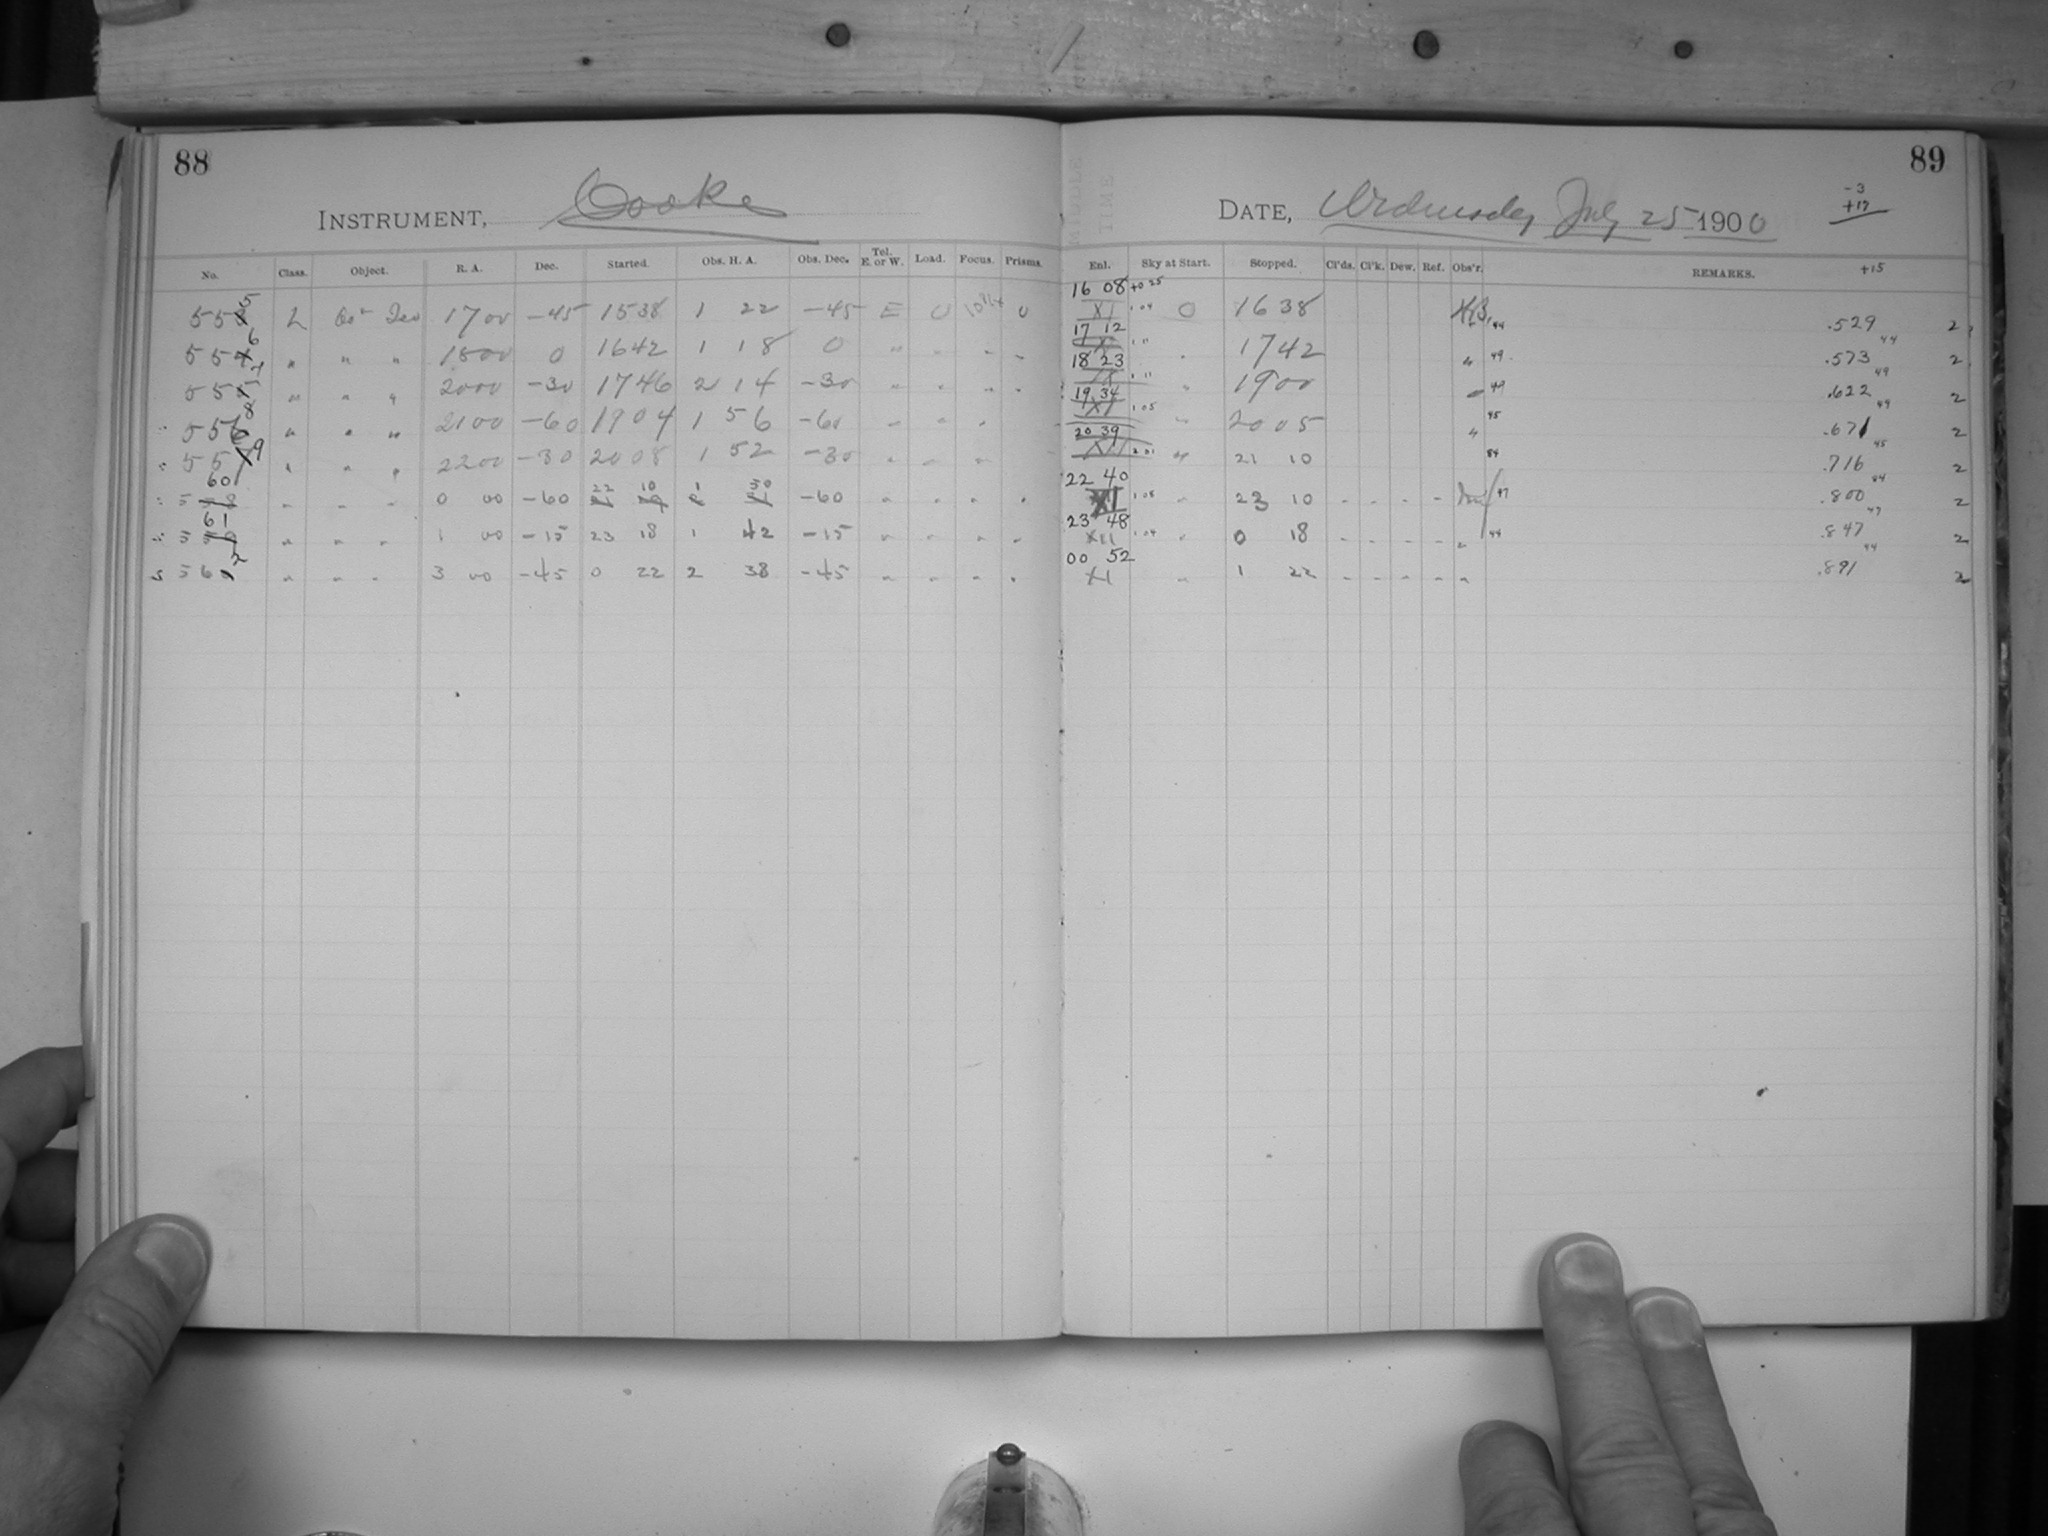 88
89
INSTRUMENT, Cooke
DATE, Wednesday July 25 1900
-3
+17
No. Class. Object. R. A. Dec. Started. Obs. H. A. Obs. Dec. Tel. E. or W. Load. Focus. Prisms.
Enl. Sky at Start. Stopped. Cl'ds. Cl'k. Dew. Ref. Obs'r. REMARKS. +15
555 L 1700 -45 1538 1 22 -45 E 0 0 16 08 XI 1 04 0 1638 44 .529 2
556 " " " 1800 0 1642 1 18 0 " " " " 17 12 1 11 " 1742 " 49 .573 44 2
557 " " " 2000 -30 1746 2 14 -30 " " " " 18 23 1 11 " 1900 " 49 .622 49 2
558 " " " 2100 -60 1904 1 56 -60 " " " 19 34 XI 1 05 " 2005 " 45 .671 49 2
559 " " " 2200 -30 2008 1 52 -30 " " " 20 39 XII 2 01 " 21 10 84 .716 45 2
560 " " " 0 00 -60 22 10 1 50 -60 " " " " 22 40 XI 1 08 " 23 10 47 .800 84 2
561 " " " 1 00 -15 23 18 1 42 -15 " " " " 23 48 XII 1 04 " 0 18 " 44 .847 47 2
562 " " " 3 00 -45 0 22 2 38 -45 " " " " 00 52 XI " 1 22 " .891 44 2